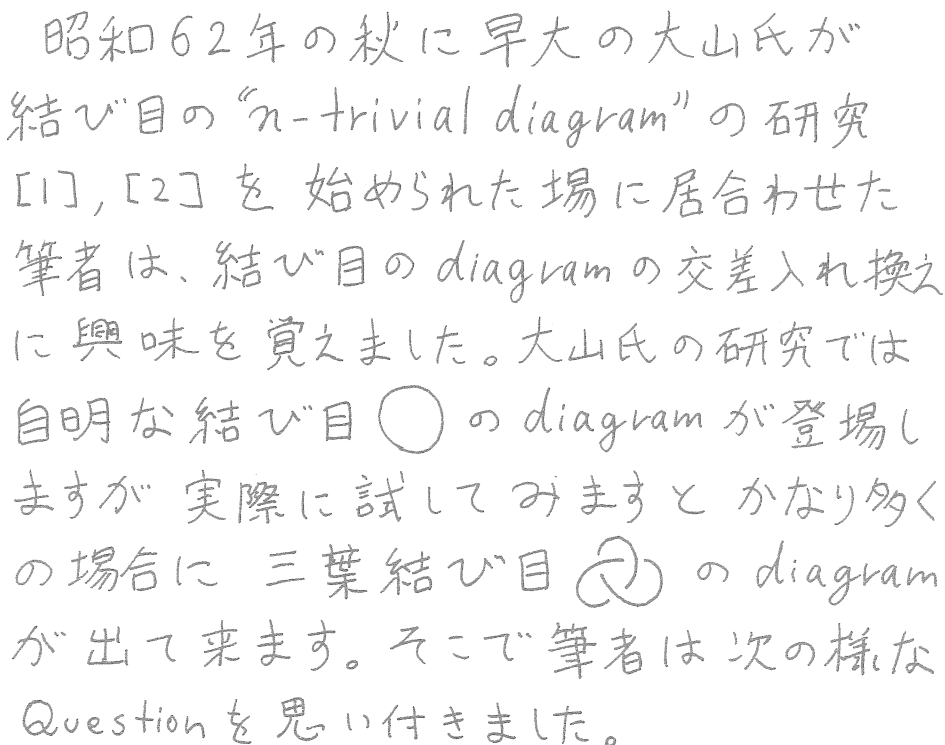 昭和62年の秋に早大の大山氏が
結び目の“n-trivial diagram”の研究
[1],[2]を始められた場に居合わせた
筆者は、結び目のdiagramの交差入れ換え
に興味を覚えました。大山氏の研究では
自明な結び目 のdiagramが登場し
ますが実際に試してみますとかなり多く
の場合に三葉結び目 のdiagram
が出て来ます。そこで筆者は次の様な
Questionを思い付きました。